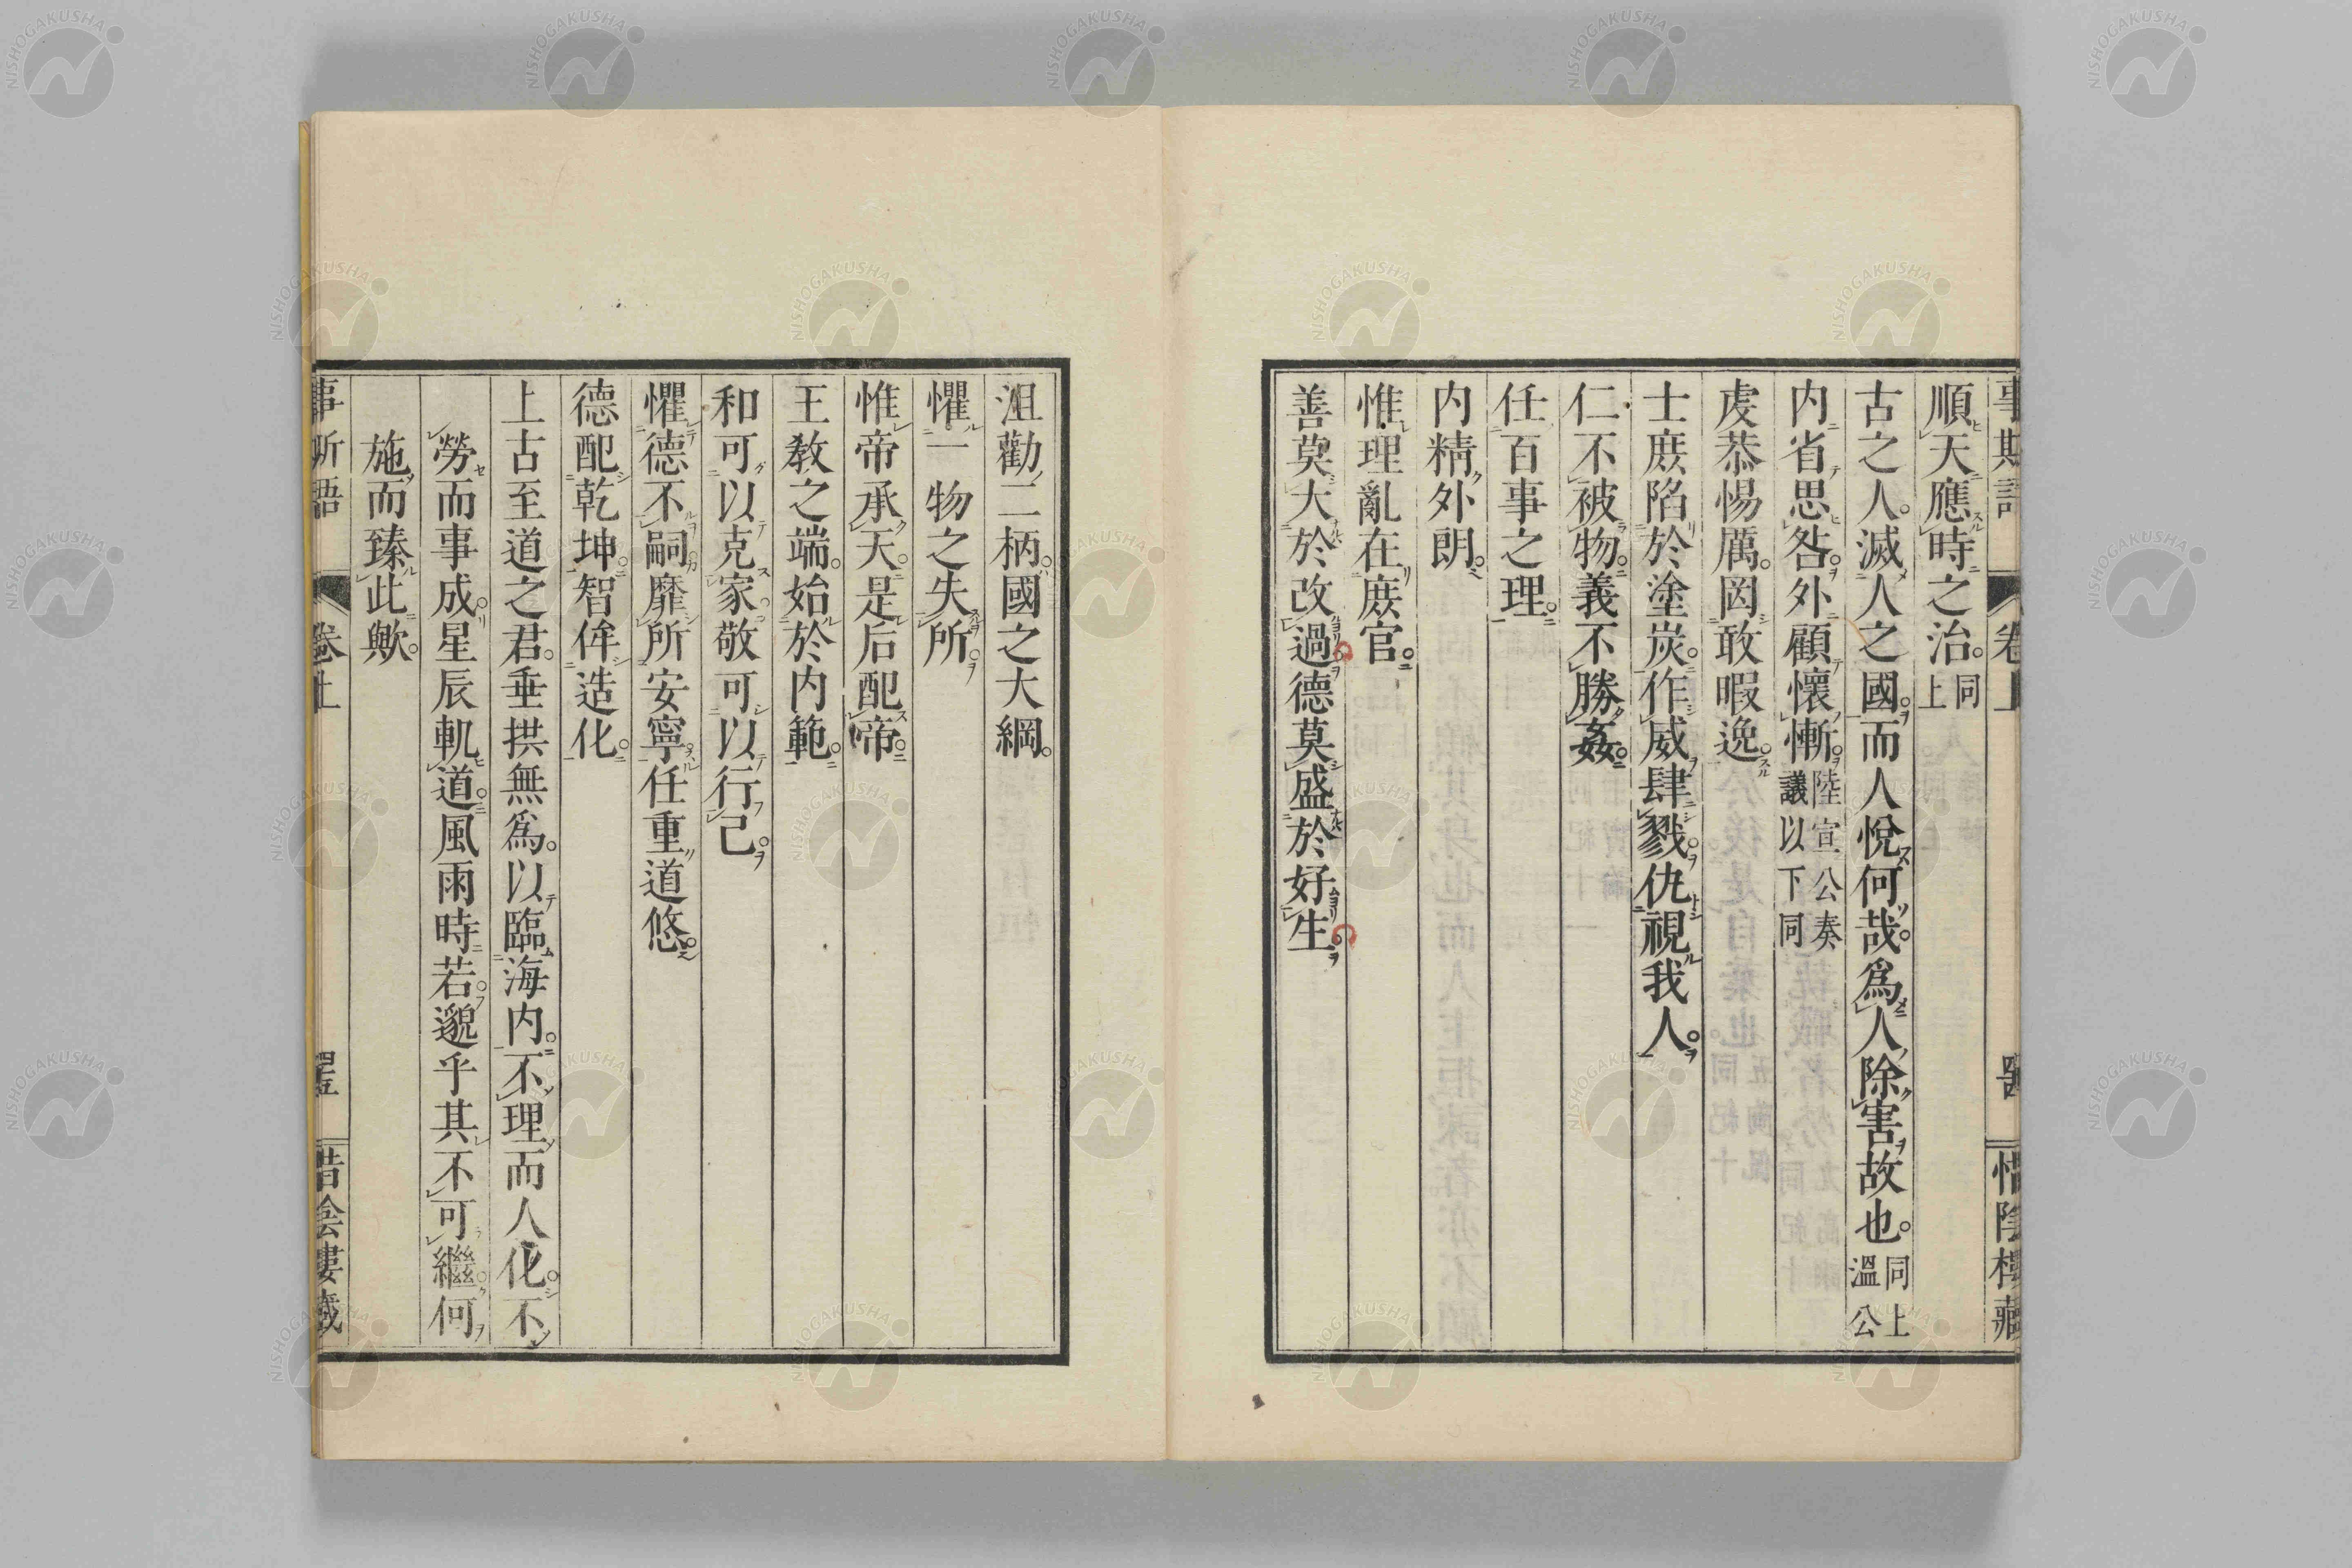 順天應時之治。同上
古之人。滅人之國。而人悅何哉。爲人除害故也。同上溫公
内省思咎。外顧懷慚。陸宣公奏議以下同
虔恭惕厲。罔敢暇逸。
士庶陷於塗炭。作威肆戮。仇視我人。
仁不被物。義不勝姦。
任百事之理。
内精外朗。
惟理亂在庶官。
善莫大於改過。德莫盛於好生。
沮勸二柄。國之大綱。
懼一物之失所。
惟帝承天。是后配帝。
王教之端。始於内範。
和可以克家。敬可以行己。
懼德不嗣。靡所安寧。任重道悠。
德配乾坤。智侔造化。
上古至道之君。垂拱無爲。以臨海内。不理而人化。不
勞而事成。星辰軌道。風雨時若。邈乎其不可繼。何
施而臻此歟。
事斯語 卷上 惜陰樓藏
NISHOGAKUSHA